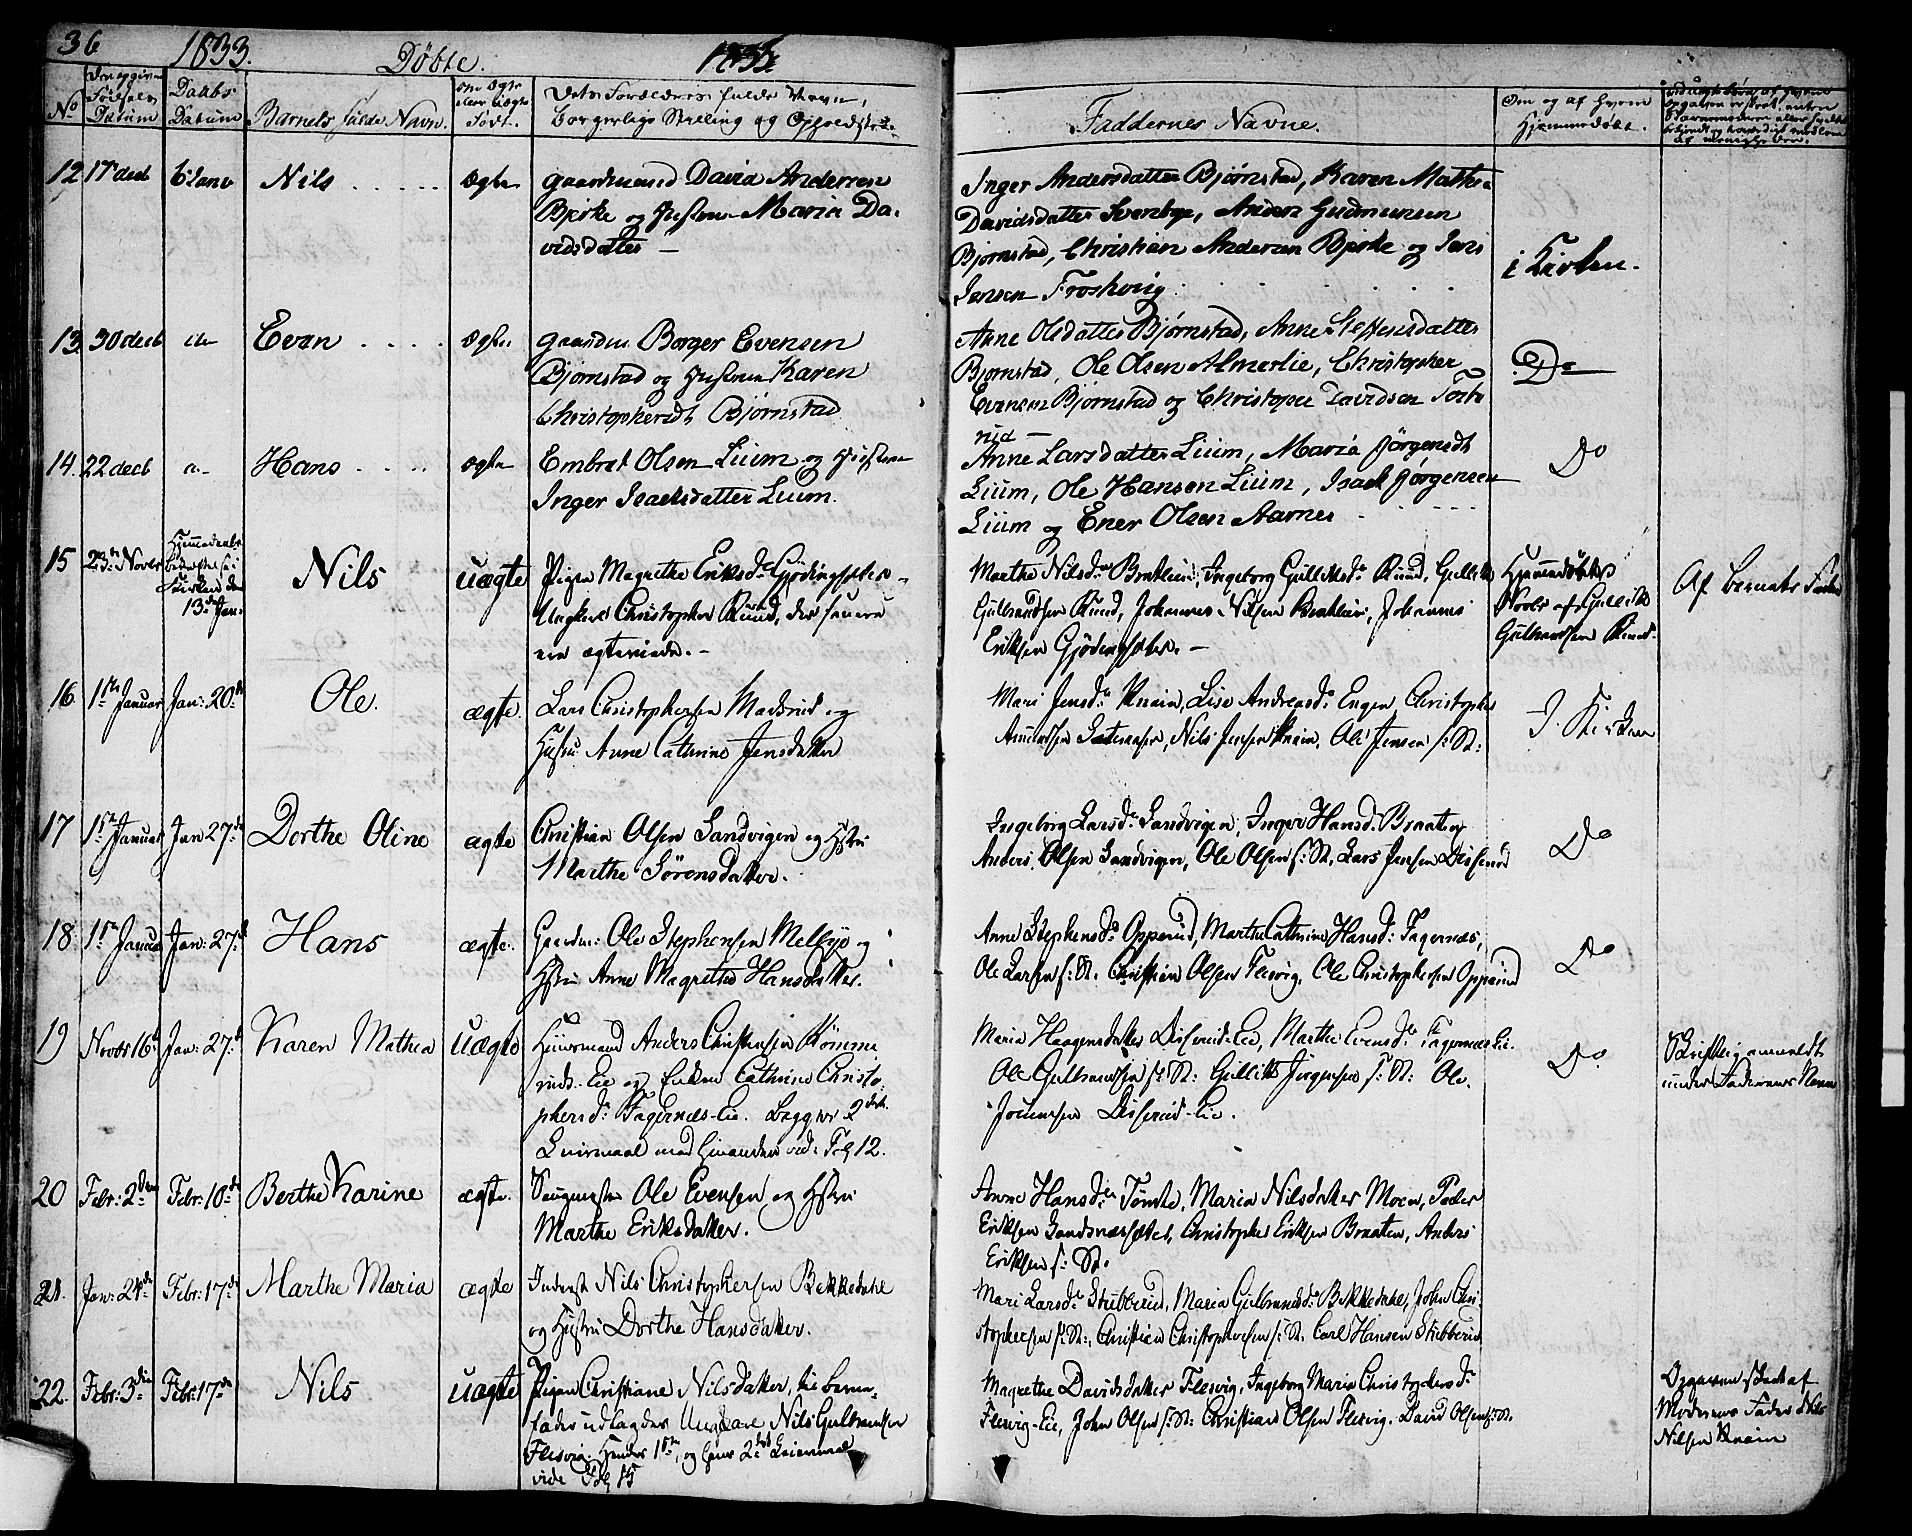 36 1833. Döbte. 1833.
No Den opgivne Fødsels Datum
Daabs Datum
Barnets fulde Navn.
om Ægte eller Uægte Født.
Dets Forældres fulde Navn,
Borgerlige Stilling og Opholdsted.
Faddernes Navne.
Om og af hvem Hjemmedøbt.
12 17 decb 6 Janv Nils ægte Gaardmand David Andersen
Bjerke og Hustrue Maria Da-
vidsdatter
Inger Andersdatter Bjørnstad, Karen Mathea
Davidsdatter Svenbye, Anders Gudmunsen
Bjørnstad, Christian Andersen Bjerke og Jens
Jensen Froshvig
i Kirken.
13 30 decb do Even ægte Gaardm. Borger Evensen
Bjørnstad og Hustrue Karen
Christophersdt Bjørnstad
Anne Olsdatter Bjørnstad, Anne Steffensdatter
Bjørnstad, Ole Olsen Almerlie, Christopher
Evensen Bjørnstad og Christoper Davidsen Torte
rud
Do
14. 22 decb Hans ægte Embret Olsen Liium og Hustrue
Inger Isacksdatter Liium.
Anne Larsdatter Liium, Maria Jörgensdt
Liium, Ole Hansen Liium, Isack Jørgensen
Liium og Ener Olsen Aarnes
Do
15 23de Novbr Hjemmedaab
bekræftet i
Kirken den
13de Jan:
Nils uægte Pigen Magrethe Eriksdr
Ungkarl Christopher Ruud,
Marthe Nilsdr Ingeborg Gulliksdr Ruud, Gullik
Gulbrandsen Ruud, Johannes Nilsen Johannes
Eriksen
Hjemmedøbt
Novbr af Gullik
Gulbrandsen Ruud.
Af Barnets Fader
16 1ste Januar Jan: 20de Ole. ægte. Lars Christophersen Madsrud og
Hustru Anne Cathrine Jensdatter
Mari Jensdr Knain, Lise Andreasdr Engen, Christopher
Amundsen Nils Jensen Knain, Ole Jensen f: St:
I Kirken
17 1ste Januar Jan 27de Dorthe Oline ægte Christian Olsen Sandvigen og Hstru
Marthe Sörensdatter.
Ingeborg Larsdr Sandvigen, Inger Hansd: Braaten
Anders Olsen Sandvigen, Ole Olsen f: St, Lars Jensen Diserud
Do
18 1ste Januar Jan: 27de Hans ægte. Gaardm: Ole Stephensen Mellbye og
Hstru Anne Magrethe Hansdatter.
Anne Stephensdr Opperud, Marthe Cathrine Hansd: Fagernæs,
Ole Larsen f: St. Christian Olsen Flesvig, Ole Christophersen Opperud
Do
19 Novbr 16de Jan: 27de Karen Mathea uægte Huusmand Anders Christensen Römme
ruds-Eie og Enken Cathrine Christo-
phersdr Fagernæs-Eie. Begges 2det
Leiermaal med hinanden vid: Fol 12.
Maria Haagensdatter Diserud-Eie, Marthe Evensdr Fagernæs Eie.
Ole Gulbrandsen f: St: Gullik Jörgensen f: St: Ole
Johannesen Diserud-Eie.
Do
Skriftlig anmeldt
under Faderens Navn
20 Febr: 2den Febr: 10de Berthe Karine ægte. Saugmester Ole Evensen og Hstru
Marthe Eriksdatter.
Anne Hansdr Tömte, Maria Nilsdatter Moen, Peder
Eriksen Christopher Eriksen Braaten, Anders
Eriksen f: St.
21. Jan: 24de Febr: 17de Marthe Maria ægte Inderst Nils Christophersen Bekkedahl
og Hustru Dorthe Hansdatter.
Mari Larsdr Stubberud, Maria Gulbrandsdr Bekkedahl, John Chri-
stophersen f: St: Christian Christophersen f: St. Carl Hansen Stubberud
22. Febr: 3die Febr: 17de Nils uægte Pigen Christiane Nilsdatter, til Barne-
fader udlagdes Ungkarl Nils Gulbrandsen
Flesvig. Hendes 1ste, og hans 2det Leiermaal
vide Fol 15
Magrethe Davidsdatter Flesvig, Ingeborg Maria Christophersdr
Flesvig-Eie, John Olsen f: St: Christian Olsen Flesvig. David Olsen f: St.
Opgaven skeet af
Moderens Fader Nils
Nilsen Knain